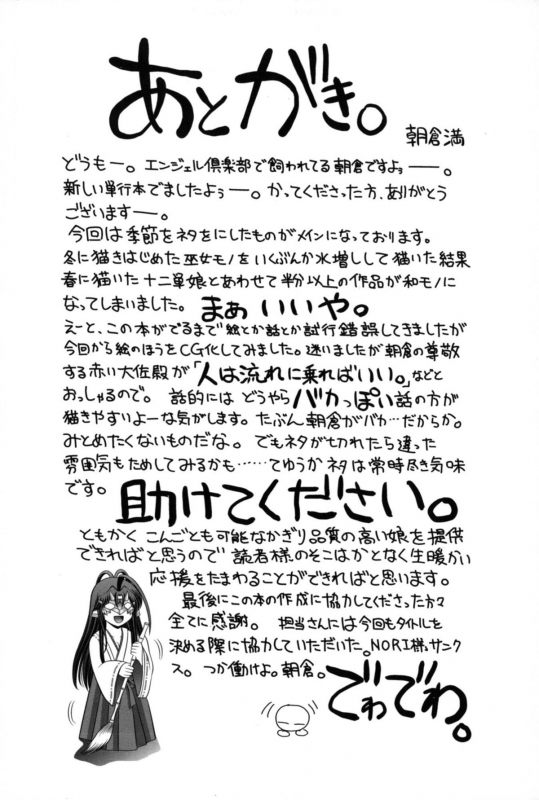 あとがき。
朝倉満
どうもー。エンジェル倶楽部で飼われてる朝倉ですよぉ――。
新しい単行本でましたよぅー。かってくださった方、ありがとう
ございますー。
今回は季節をネタをにしたものがメインになっております。
冬に猫きはじめた巫女モノをいくぶんか水増しして猫いた結果
春に猫いた十二単娘とあわせて半分以上の作品が和モノに
なってしまいました。まぁいいや。
えーと、この本がでるまで絵とか話とか試行錯誤してきましたが
今回から絵のほうをCG化してみました。迷いましたが朝倉の尊敬
する赤い大佐殿が「人は流れに乗ればいい。」などと
おっしゃるので。話的にはどうやらバカっぽい話の方が
猫きやすいよーな気がします。たぶん朝倉がバカ…だからか。
みとめたくないものだな。でもネタが切れたら違った
雰囲気もためしてみるかも……てゆうかネタは常時尽き気味
です。助けてください。
ともかくこんごとも可能なかぎり品質の高い娘を提供
できればと思うので読者様のそこはかとなく生暖かい
応援をたまわることができればと思います。
最後にこの本の作成に協力してくださった方々
全てに感謝。担当さんには今回もタイトルを
決める際に協力していただいた。NORI様、サンク
ス。つか働けよ。朝倉。
でわでわ。